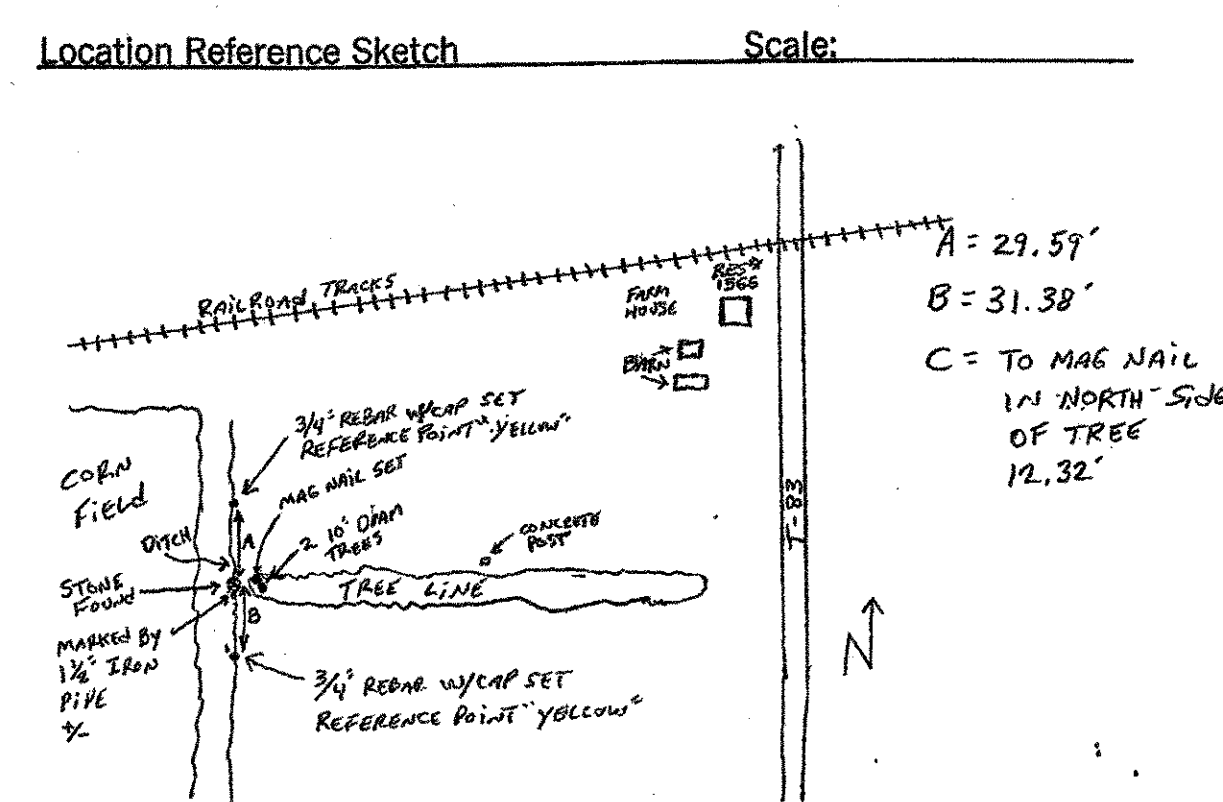 Location Reference Sketch
Scale:
RAILROAD TRACKS
FARM
HOUSE
RES#
1566
BARN
A = 29.59'
B = 31.38'
C = TO MAG NAIL
IN NORTH-SIDE
OF TREE
12.32'
3/4" REBAR W/CAP SET
REFERENCE POINT "YELLOW"
MAG NAIL SET
2 10" DIAM
TREES
CORN
FIELD
DITCH
A
CONCRETE
POST
T-83
STONE
FOUND
TREE LINE
B
MARKED BY
1½" IRON
PIPE
+/-
3/4" REBAR W/CAP SET
REFERENCE POINT "YELLOW"
N